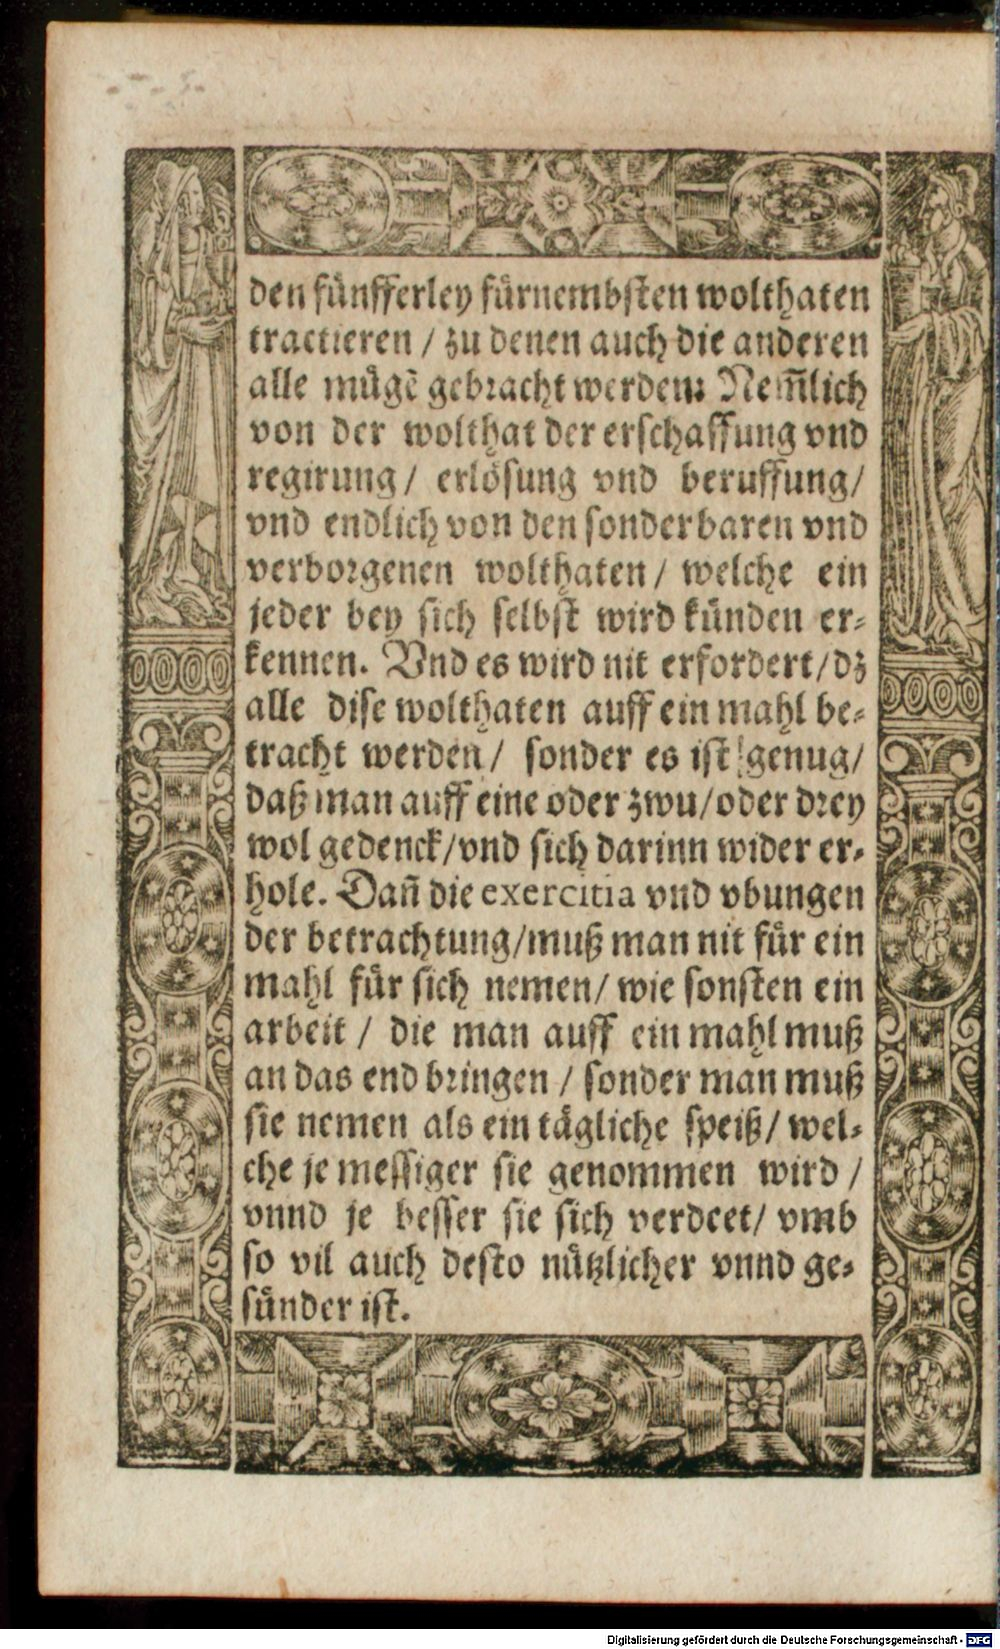 den fünfferley fürnembsten wolthaten
tractieren / zu denen auch die anderen
alle mügē gebracht werden: Nem̄lich
von der wolthat der erschaffung vnd
regirung / erlösung vnd beruffung /
vnd endlich von den sonderbaren vnd
verborgenen wolthaten / welche ein
jeder bey sich selbst wird künden er-
kennen. Vnd es wird nit erfordert / dz
alle dise wolthaten auff ein mahl be-
tracht werden / sonder es ist genug /
daß man auff eine oder zwu / oder drey
wol gedenck / vnd sich darinn wider er-
hole. Dañ die exercitia vnd vbungen
der betrachtung / muß man nit für ein
mahl für sich nemen / wie sonsten ein
arbeit / die man auff ein mahl muß
an das end bringen / sonder man muß
sie nemen als ein tägliche speiß / wel-
che je messiger sie genommen wird /
vnnd je besser sie sich verdeet / vmb
so vil auch desto nützlicher vnnd ge-
sünder ist.
Digitalisierung gefördert durch die Deutsche Forschungsgemeinschaft - DFG